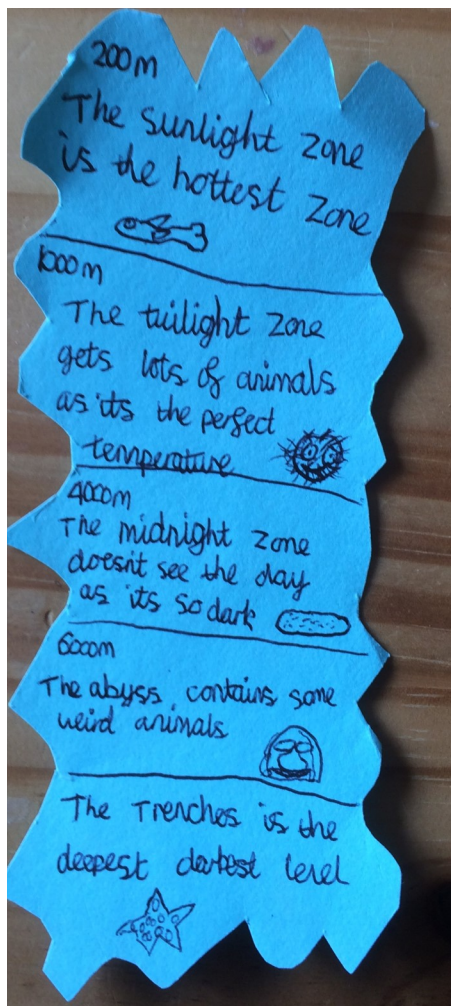 200m
The sunlight zone
is the hottest zone
1000m
The twilight zone
gets lots of animals
as its the perfect
temperature
4000m
The midnight zone
doesn't see the day
as its so dark
6000m
The abyss contains some
weird animals
The Trenches is the
deepest darkest level